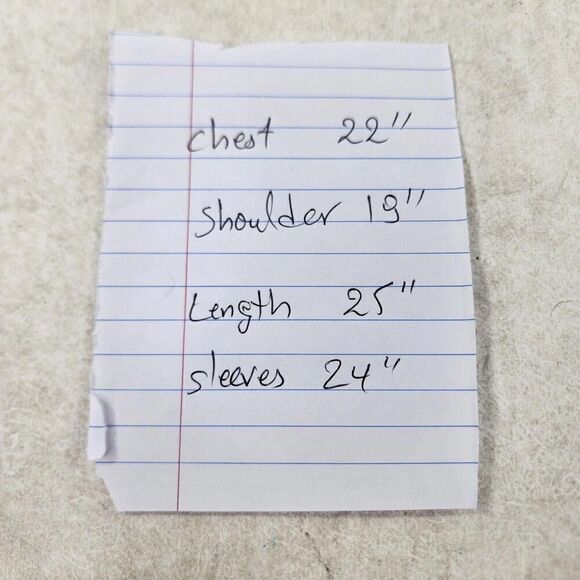 chest 22"
Shoulder 19"
Length 25"
sleeves 24"